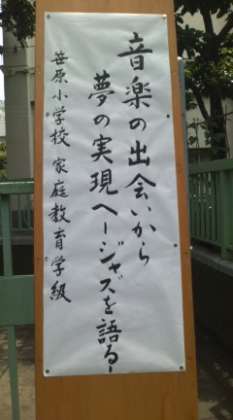 音楽の出会いから
夢の実現へージャズを語る!
笹原小学校 家庭教育学級